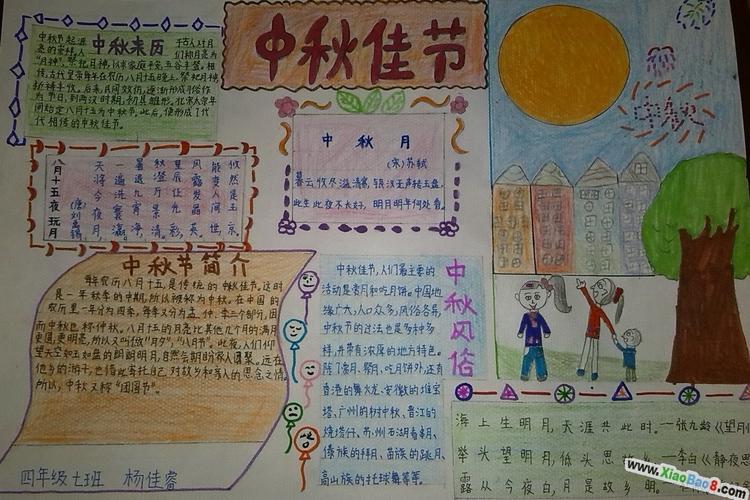 中秋佳节
中秋来历
中秋节起源于古人对月
亮的崇拜,人们称月亮为
"月神",祭祀月神,以求家庭平安,五谷丰登。相
传,古代皇帝每年在农历八月十五晚上,祭祀月神,
祈祷丰收。后来,民间效仿,逐渐形成习俗作
为节日,到两汉时期,初具雏形。北宋太宗年
间始定八月十五为中秋节。此后,便形成了代
代相传的中秋佳节。
八月十五夜玩月
(唐)刘禹锡
天将今夜月,
一遍洗寰瀛。
暑退九霄净,
秋澄万景清。
星辰让光彩,
风露发晶英。
能变人间世,
攸然是玉京。
中秋月
(宋)苏轼
暮云收尽溢清寒,银汉无声转玉盘。
此生此夜不长好,明月明年何处看。
中秋
中秋节简介
每年农历八月十五,是传统的中秋佳节。这时
是一年秋季的中期,所以被称为中秋。在中国的
农历里,一年分为四季,每季又分为孟、仲、季三个部分,因
而中秋也称仲秋。八月十五的月亮比其他几个月的满月
更圆,更明亮,所以又叫做"月夕","八月节"。此夜,人们仰
望天空如玉如盘的朗朗明月,自然会期盼家人团聚。远在
他乡的游子,也借此寄托自己对故乡和亲人的思念之情。
所以,中秋又称"团圆节"。
四年级七班 杨佳睿
中秋风俗
中秋佳节,人们最主要的
活动是赏月和吃月饼。中国地
缘广大,人口众多,风俗各异,
中秋节的过法也是多种多
样,并带有浓厚的地方特色。
除了赏月、祭月、吃月饼外,还有
香港的舞火龙、安徽的堆宝
塔、广州的树中秋、晋江的
烧塔仔、苏州石湖看串月、
傣族的拜月、苗族的跳月、
高山族的托球舞等等。
海上生明月,天涯共此时。—张九龄《望月
举头望明月,低头思故乡。—李白《静夜思
露从今夜白,月是故乡明。
www.XiaoBao8.com